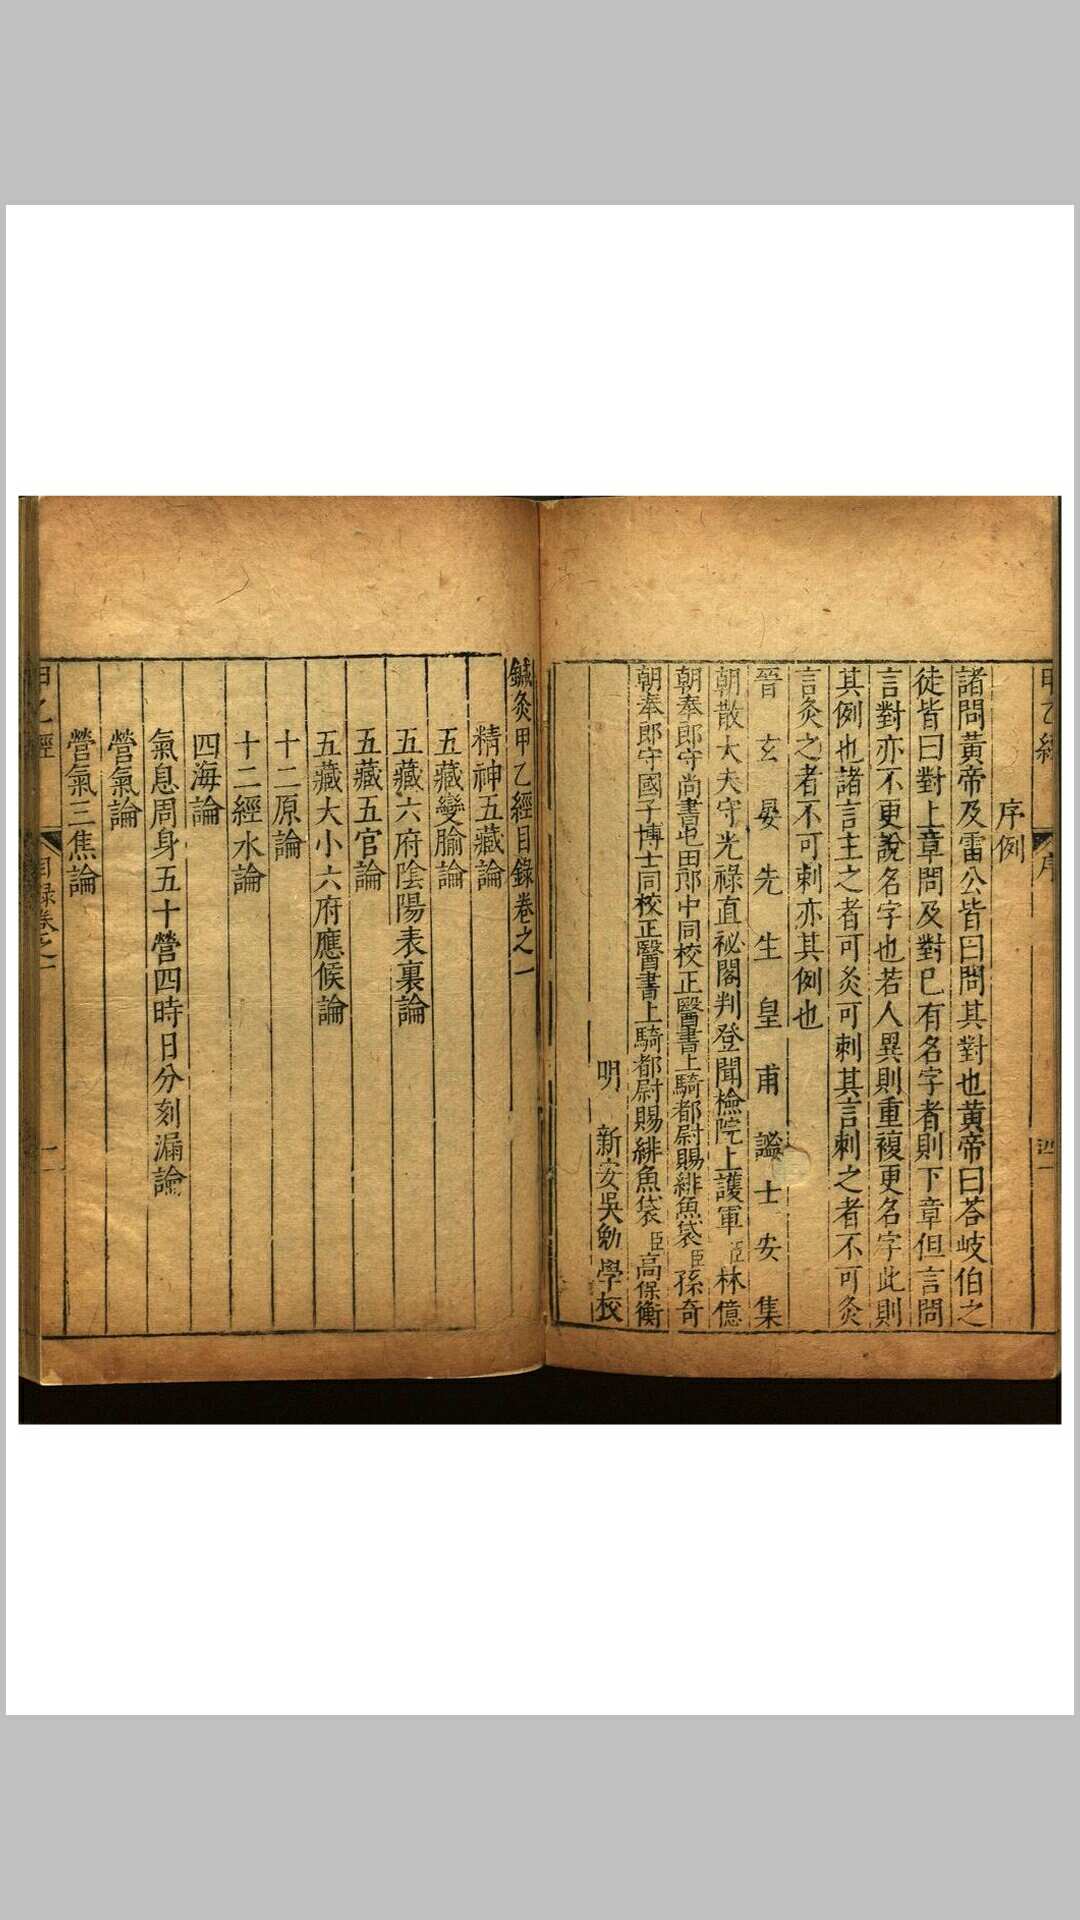 甲乙經 序 四
序例
諸問黃帝及雷公皆曰問其對也黃帝曰荅岐伯之
徒皆曰對上章問及對巳有名字者則下章但言問
言對亦不更說名字也若人異則重複更名字此則
其例也諸言主之者可灸可刺其言刺之者不可灸
言灸之者不可刺亦其例也
晉玄晏先生皇甫謐士安集
朝散大夫守光祿直祕閣判登聞檢院上護軍臣林億
朝奉郎守尚書屯田郎中同校正醫書上騎都尉賜緋魚袋臣孫奇
朝奉郎守國子博士同校正醫書上騎都尉賜緋魚袋臣高保衡
明新安吳勉學校
鍼灸甲乙經目錄卷之一
精神五藏論
五藏變腧論
五藏六府陰陽表裏論
五藏五官論
五藏大小六府應候論
十二原論
十二經水論
四海論
氣息周身五十營四時日分刻漏論
營氣論
營氣三焦論
甲乙經 目錄卷之一